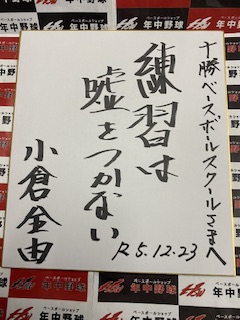 十勝ベースボールスクールさまへ
練習は
嘘をつかない
R5.12.23
小倉全由
ベースボールショップ
年中野球